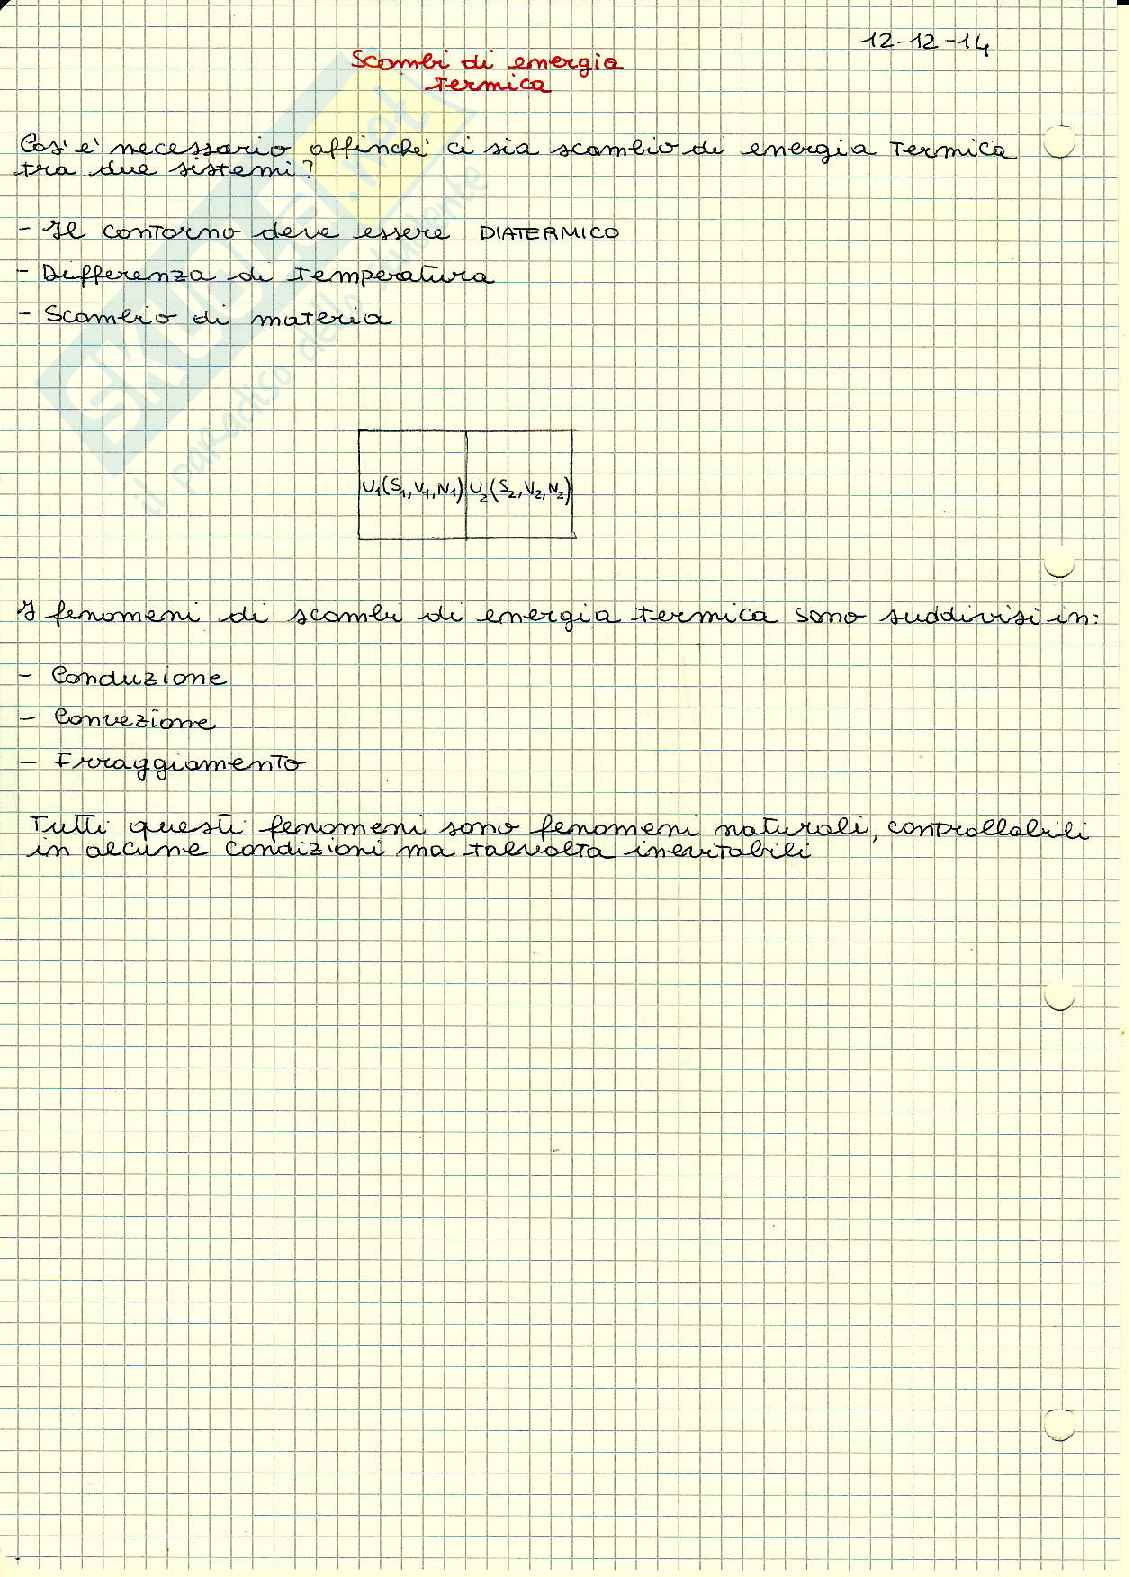 12-12-14
Scambi di energia
termica
Cos'è necessario affinché ci sia scambio di energia termica
tra due sistemi?
- Il contorno deve essere DIATERMICO
- Differenza di temperatura
- Scambio di materia
U₁(S₁,V₁,N₁) U₂(S₂,V₂,N₂)
I fenomeni di scambi di energia termica sono suddivisi in:
- Conduzione
- Convezione
- Irraggiamento
Tutti questi fenomeni sono fenomeni naturali, controllabili
in alcune condizioni ma talvolta inevitabili
SKUOLA.net
il paradiso dello studente